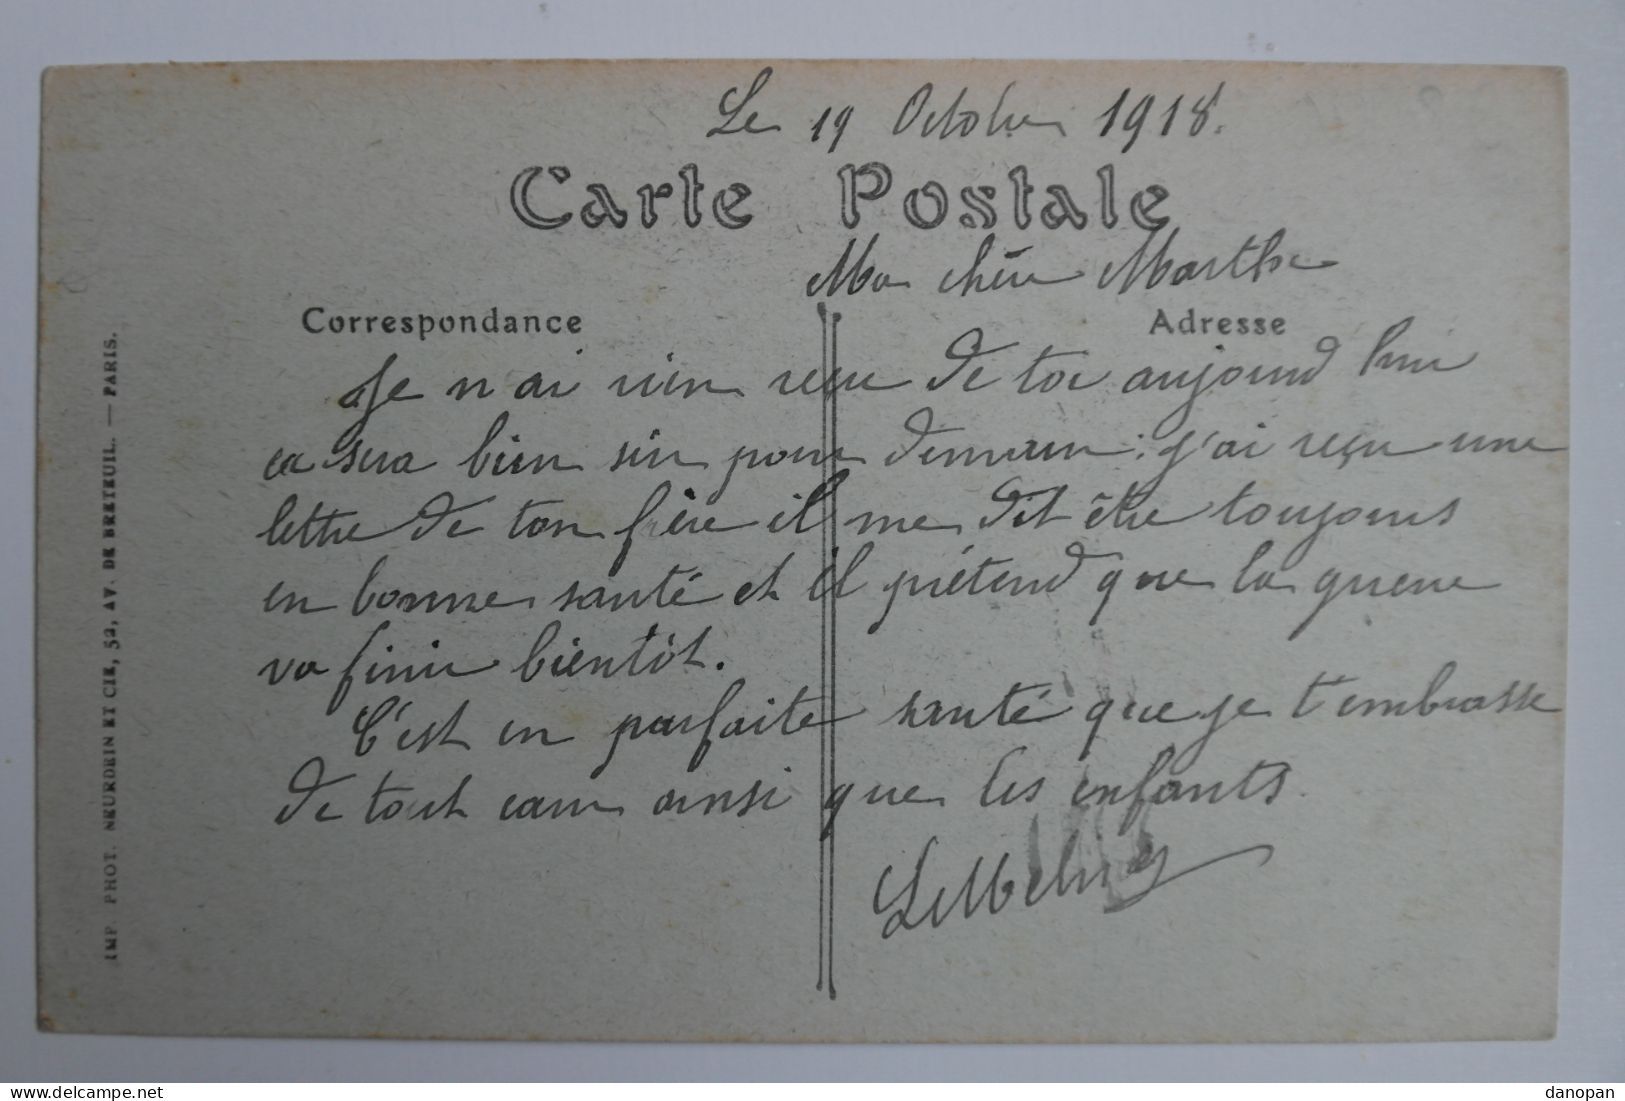 Le 19 Octobre 1918.
Carte Postale
Ma chère Marthe
Correspondance
Adresse
Je n ai rien reçu de toi aujourd hui
ca sera bien sur pour demain : j'ai reçu une
lettre de ton frère il me dit être toujours
en bonne santé et il prétend que la guerre
va finir bientôt.
C'est en parfaite santé que je t'embrasse
de tout cœur ainsi que les enfants.
IMP. PHOT. NEURDEIN ET CIE, 52, AV. DE BRETEUIL. — PARIS.
delcampe.net
danopan